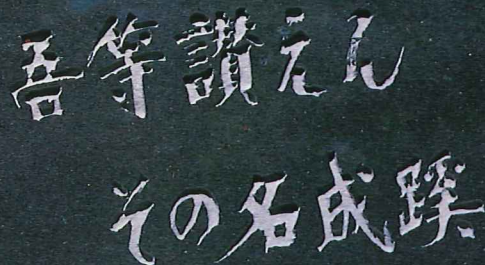 吾等讃えん
その名成蹊